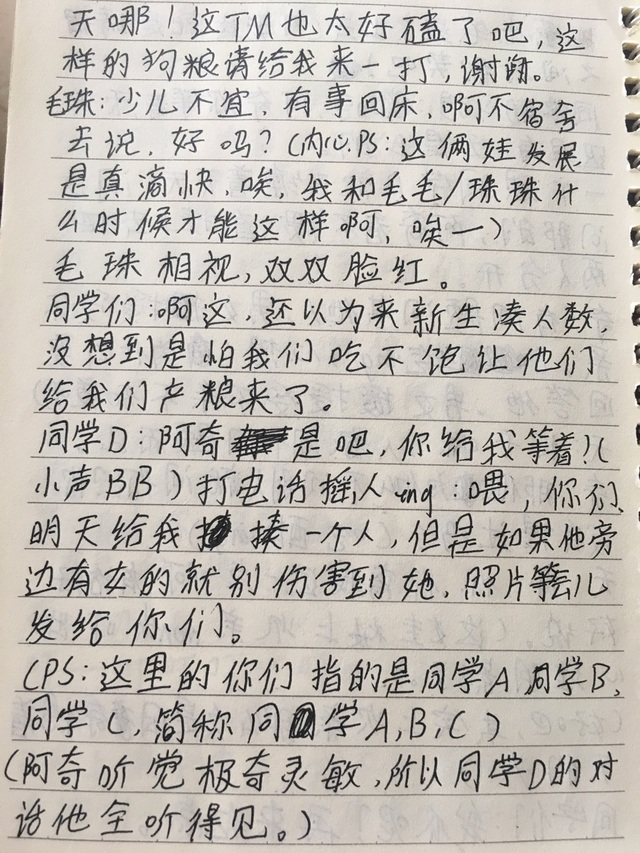 天哪！这TM也太好磕了吧，这
样的狗粮请给我来一打，谢谢。
毛珠：少儿不宜，有事回床，啊不宿舍
去说，好吗？（内心PS：这俩娃发展
是真滴快，唉，我和毛毛/珠珠什
么时候才能这样啊，唉一）
毛珠相视，双双脸红。
同学们：啊这，还以为来新生凑人数，
没想到是怕我们吃不饱让他们
给我们产粮来了。
同学D：阿奇是吧，你给我等着？（
小声BB）打电话摇人ing：喂，你们
明天给我揍一个人，但是如果他旁
边有女的就别伤害到她，照片等会儿
发给你们。
（PS：这里的你们指的是同学A，同学B，
同学C，简称同学A，B，C）
（阿奇听觉极奇灵敏，所以同学D的对
话他全听得见。）